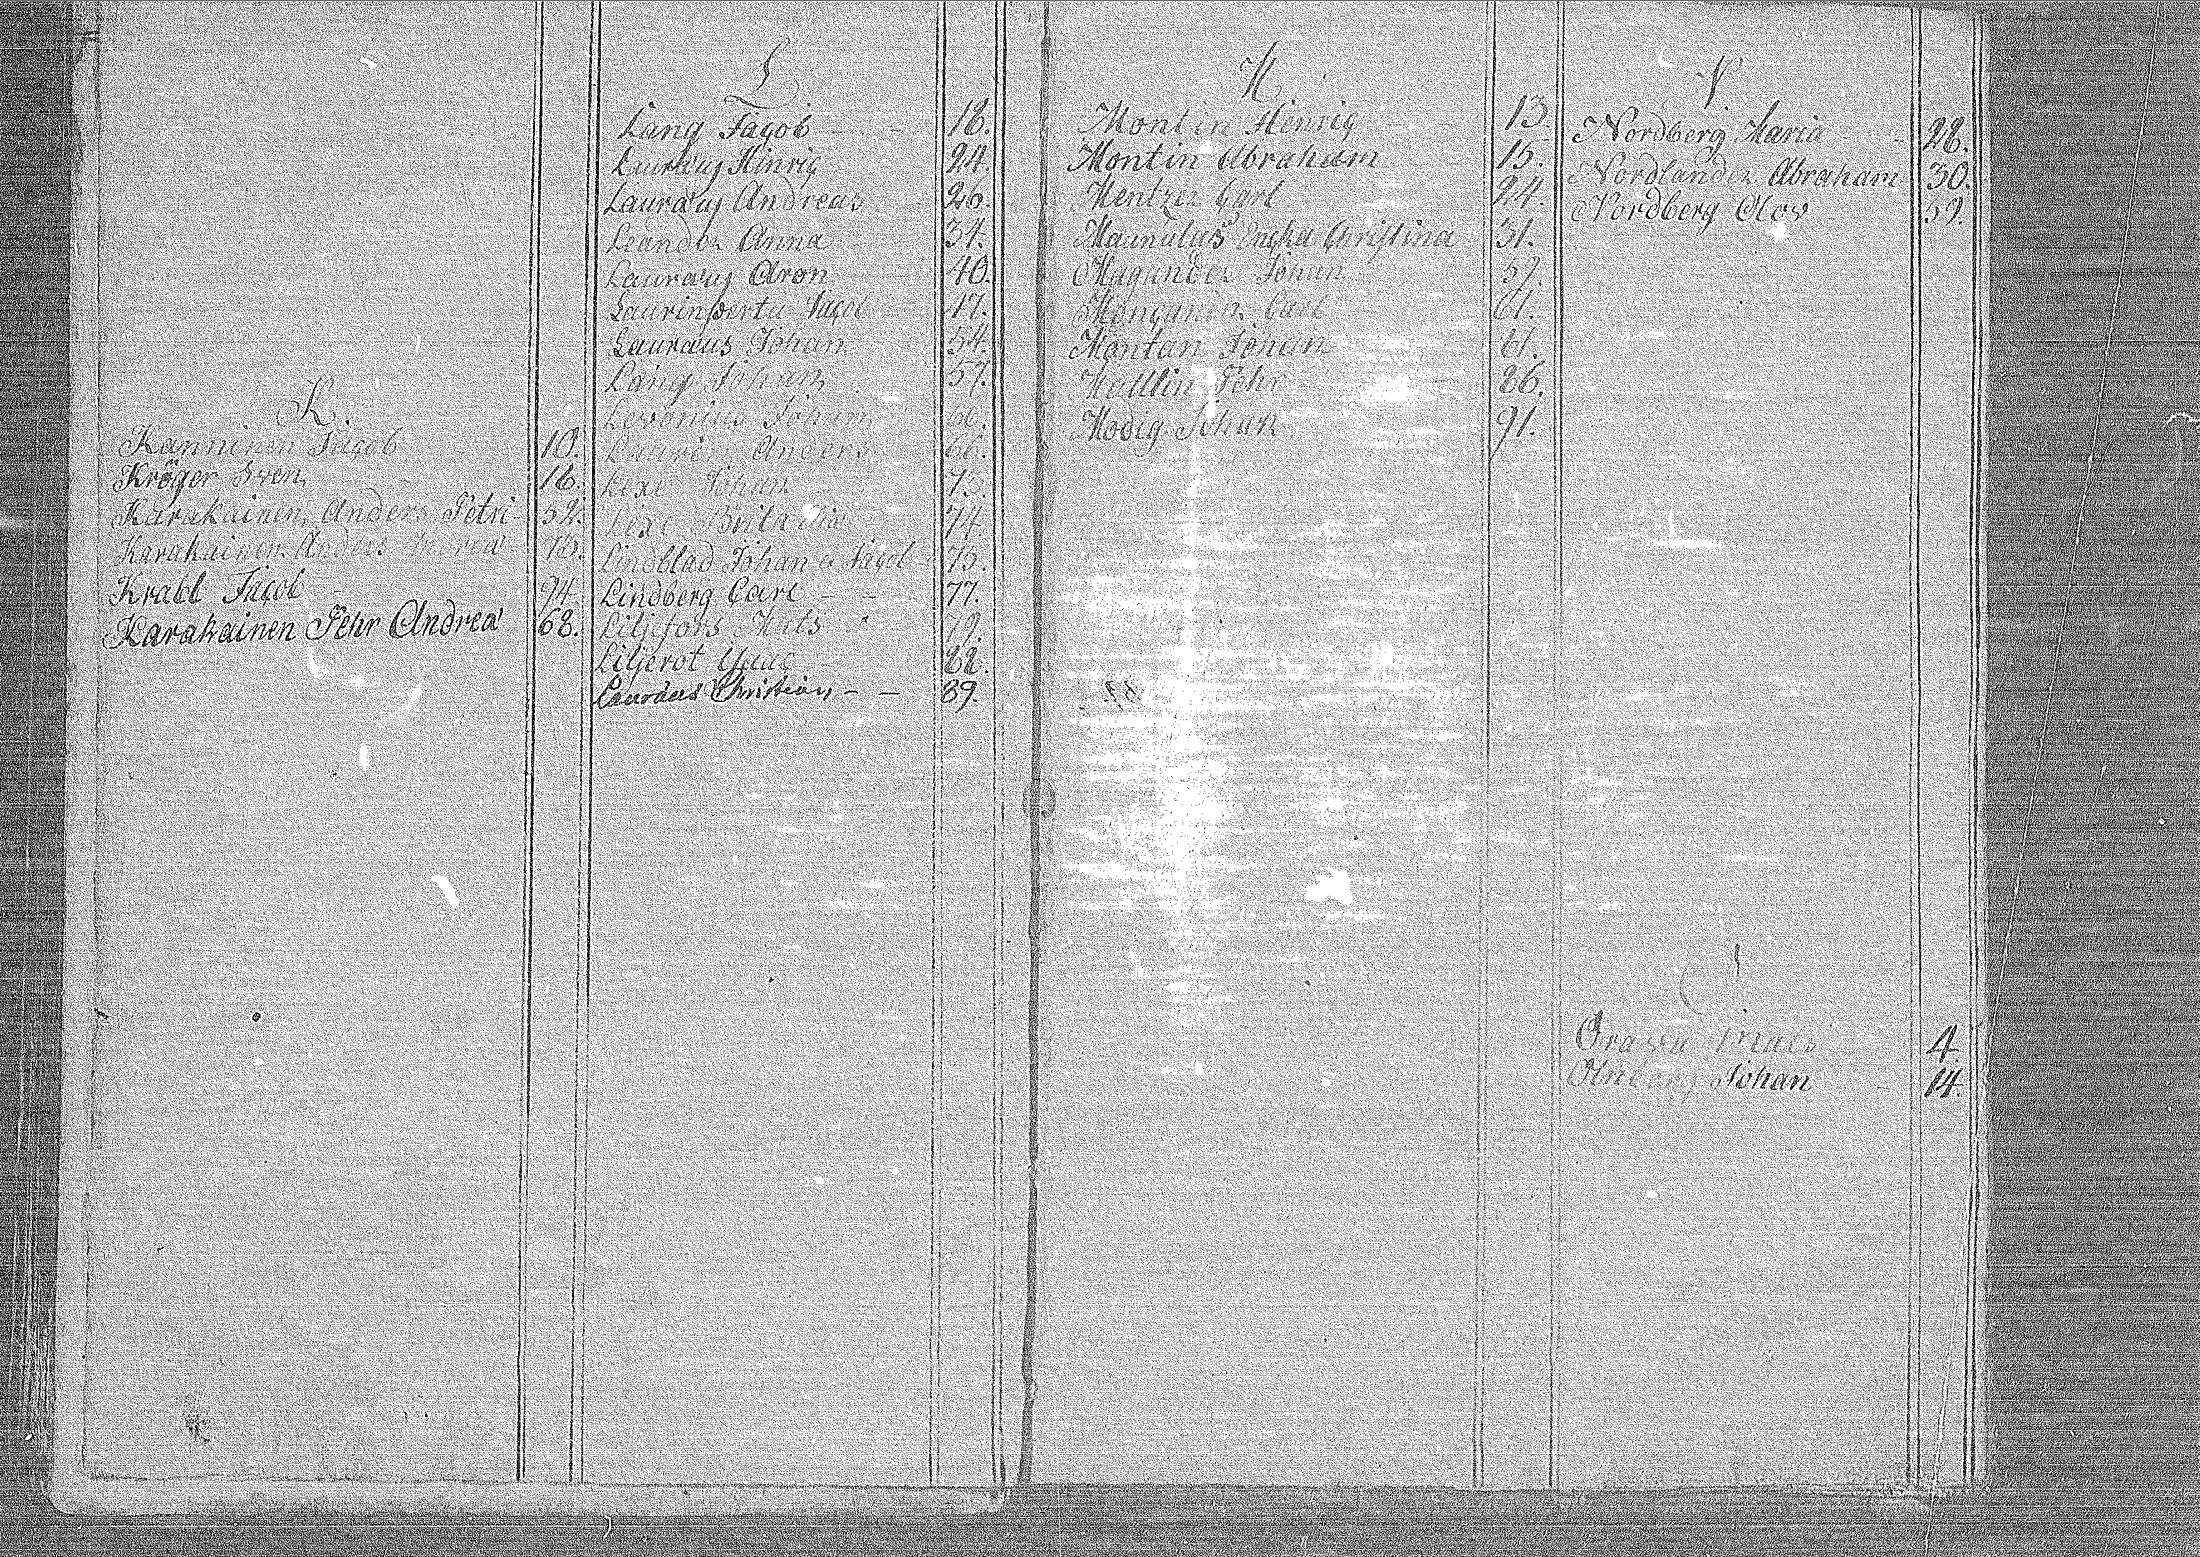 K.
Kanninen Jacob 10.
Kröger Sven 16.
Karakainen Anders Petri 52.
Karakainen Anders Andrea
Krabb Jacob 94.
Karakainen Pehr Andrea 68.
L
Lang Jacob 18.
Lauræus Hinric 24.
Lauræus Andreas 26.
Leander Anna 34.
Lauræus Aron 40.
Laurinpertu Jacob 47.
Lauræus Johan 54.
Lång Johan 57.
Johan 66.
Laurén Anders 66.
Lexe Johan 73.
Lexe Brita 74
Lindblad Johan & Jacob 75.
Lindberg Carl 77.
Liljefors Mats 79.
Liljerot 82.
Lauræus Christian 89.
M
Montin Henric 13
Montin Abraham 15.
Mentzer Carl 24.
Maunulas Encka Christina 31.
Magunder Johan 57.
Carl 61.
Montan Johan 61.
Medlin Pehr 86.
Modig Johan 91.
N
Nordberg Maria 28.
Nordlander Abraham 30.
Nordberg Olov 59.
O
Mats 4
Johan 14.